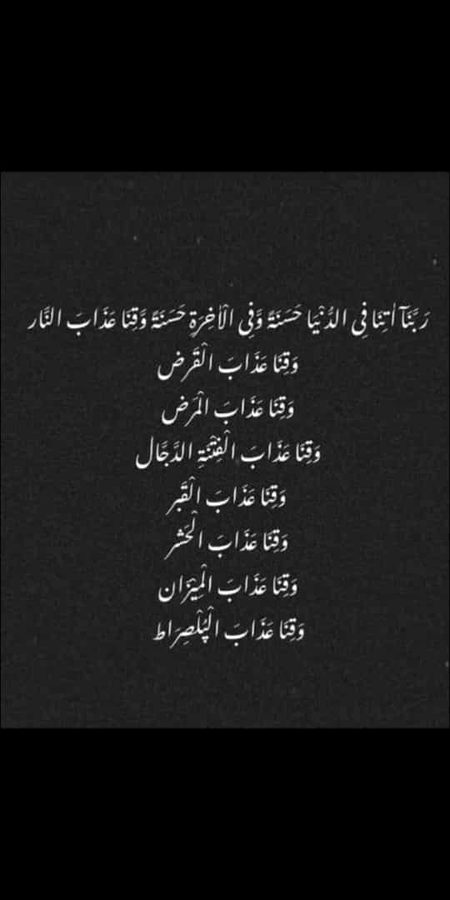 رَبَّنَآ اٰتِنَا فِی الدُّنْیَا حَسَنَةً وَّفِی الْاٰخِرَةِ حَسَنَةً وَّقِنَا عَذَابَ النَّار
وَقِنَا عَذَابَ الْقَرْض
وَقِنَا عَذَابَ الْمَرَض
وَقِنَا عَذَابَ الْفِتْنَةِ الدَّجَّال
وَقِنَا عَذَابَ الْقَبْر
وَقِنَا عَذَابَ الْحَشْر
وَقِنَا عَذَابَ الْمِیْزَان
وَقِنَا عَذَابَ الْپُلْصِرَاط